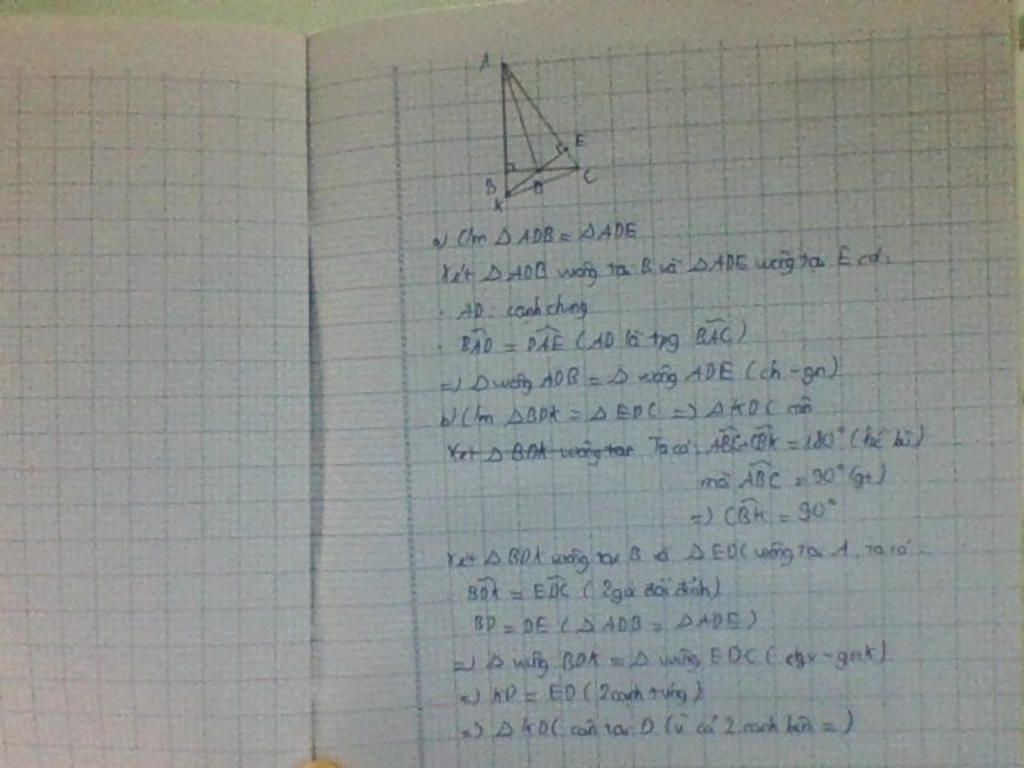 A
E
B
D
C
K
a) C/m △ ADB = △ADE
Xét △ ADB vuông tại B và △ ADE vuông tại E có:
. AD: cạnh chung
. BAD = DAE (AD là tpg BAC)
=) △ vuông ADB = △ vuông ADE (ch - gn)
b) C/m △BDK = △ EDC =) △ KDC cân
Xét △ BDK vuông tại Ta có: ABC+CBK = 180° (kề bù)
mà ABC = 90° (gt)
=) CBK = 90°
Xét △ BDK vuông tại B và △ EDC vuông tại A, ta có:
BDK = EDC (2 góc đối đỉnh)
BD = DE (△ ADB = △ADE)
=) △ vuông BDK = △ vuông EDC (cgv - gnk)
=) KD = ED (2 cạnh tứng)
=) △ KDC cân tại D (vì có 2 cạnh bên =)